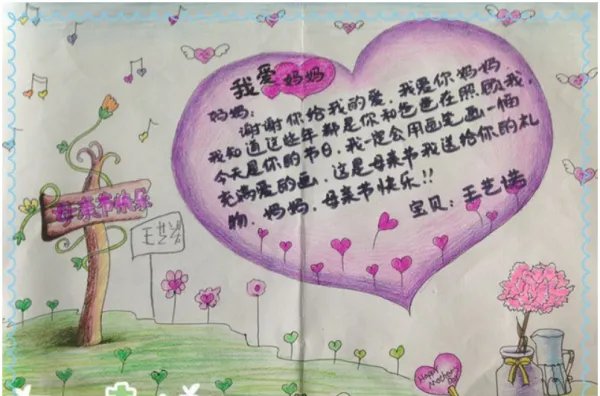 我爱妈妈
妈妈：
谢谢你给我的爱，我爱你妈妈
我知道这些年都是你和爸爸在照顾我，
今天是你的节日，我一定会用画笔画一俩
充满爱的画，这是母亲节我送给你的礼
物，妈妈，母亲节快乐!!
宝贝：王艺诺
母亲节快乐
王艺诺
Happy
Mother's
Day